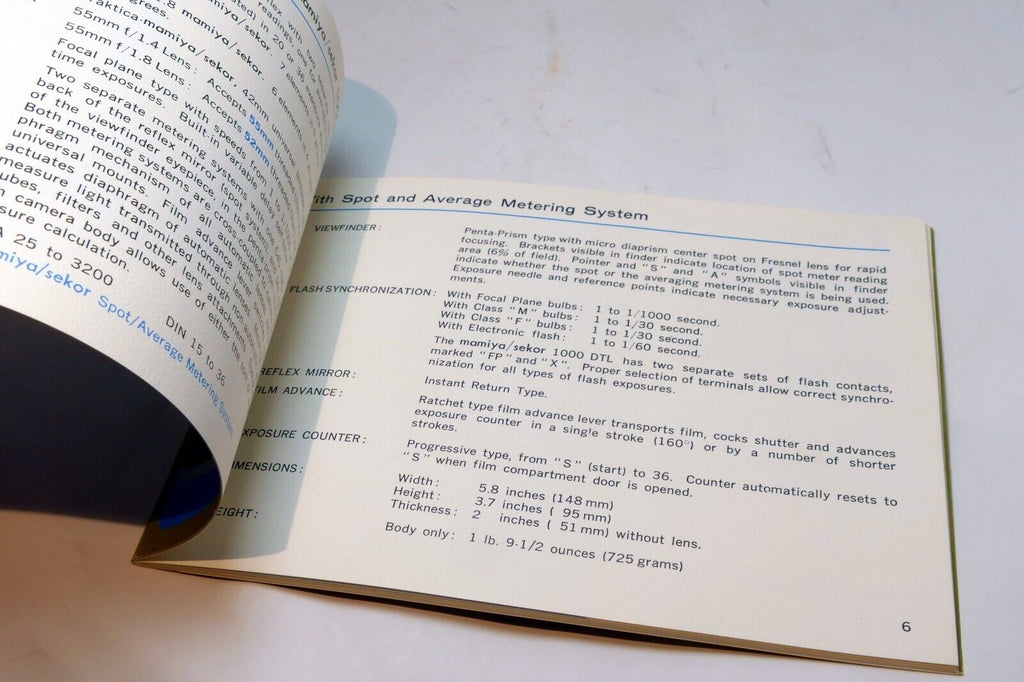 .8 mamiya/sekor. 6 elements
mamiya/sekor, 42mm
55mm f/1.4 Lens: Accepts 55mm
55mm f/1.8 Lens: Accepts 52mm
Focal plane type with speeds from
time exposures. Built-in variable delay
Two separate metering systems with
back of the reflex mirror (spot system)
of the viewfinder eyepiece, in the
Both metering systems are cross-
phragm mechanism of automatic
universal mounts. Film advance
actuates diaphragm of all automatic
measure light transmitted through lens,
filters and other lens attachments
camera body allows use of either
sure calculation.
A 25 to 3200
DIN 15 to 36
miya/sekor Spot/Average Metering System
ith Spot and Average Metering System
VIEWFINDER:
Penta-Prism type with micro diaprism center spot on Fresnel lens for rapid
focusing. Brackets visible in finder indicate location of spot meter reading
area (6% of field). Pointer and "S" and "A" symbols visible in finder
indicate whether the spot or the averaging metering system is being used.
Exposure needle and reference points indicate necessary exposure adjust-
ments.
FLASH SYNCHRONIZATION:
With Focal Plane bulbs: 1 to 1/1000 second.
With Class "M" bulbs: 1 to 1/30 second.
With Class "F" bulbs: 1 to 1/30 second.
With Electronic flash: 1 to 1/60 second.
The mamiya/sekor 1000 DTL has two separate sets of flash contacts,
marked "FP" and "X". Proper selection of terminals allow correct synchro-
nization for all types of flash exposures.
REFLEX MIRROR:
Instant Return Type.
ILM ADVANCE:
Ratchet type film advance lever transports film, cocks shutter and advances
exposure counter in a single stroke (160°) or by a number of shorter
strokes.
XPOSURE COUNTER:
Progressive type, from "S" (start) to 36. Counter automatically resets to
"S" when film compartment door is opened.
IMENSIONS:
Width: 5.8 inches (148 mm)
Height: 3.7 inches ( 95 mm)
Thickness: 2 inches ( 51 mm) without lens.
EIGHT:
Body only: 1 lb. 9-1/2 ounces (725 grams)
6